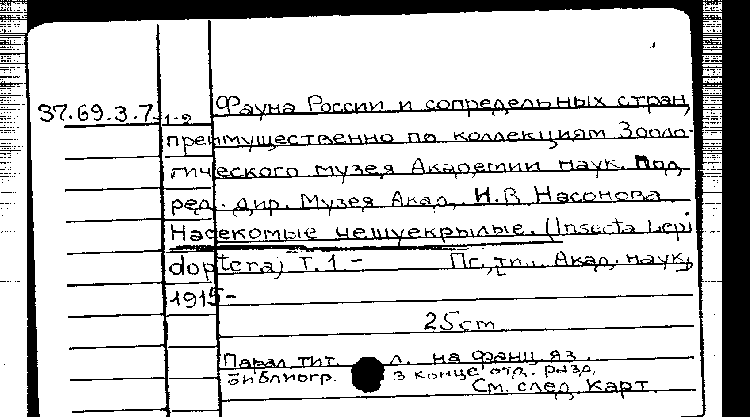 37.69.3.7-1-2 Фауна России и сопредельных стран,
преимущественно по коллекциям Зооло-
гического музея Академии наук. Под
ред. дир. Музея Акад. Н.В. Насонова.
Насекомые чешуекрылые. (Insecta Lepi
doptera) Т.1.- Пг., тип. Акад. наук,
1915-
25cm
Парал. тит. л. на франц. яз.
Библиогр. в конце отд. разд.
См. след. карт.